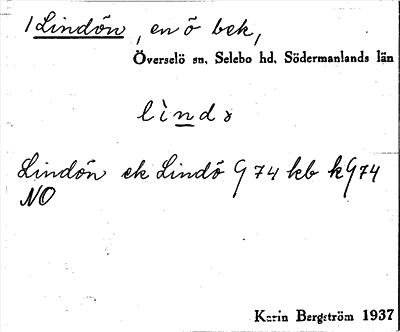 1 Lindön, en ö bek,
Överselö sn, Selebo hd, Södermanlands län
lìndɤ
Lindön ek Lindö G 74 kb kG74
NO
Karin Bergström 1937